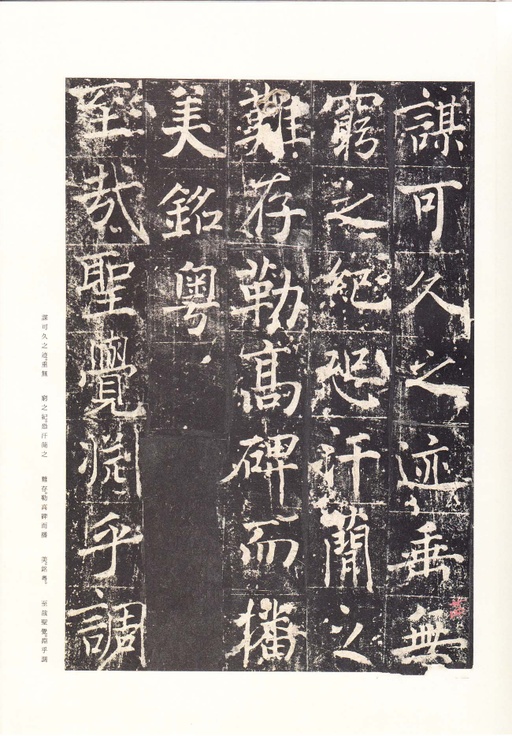 謀可久之迹垂無
窮之紀恐汗簡之
難存勒高碑而播
美銘粤
至哉聖覺淵乎調
謀可久之迹垂無　窮之紀。恐汗簡之　難存。勒高碑而播　美。銘粤。　至哉聖覺。淵乎調